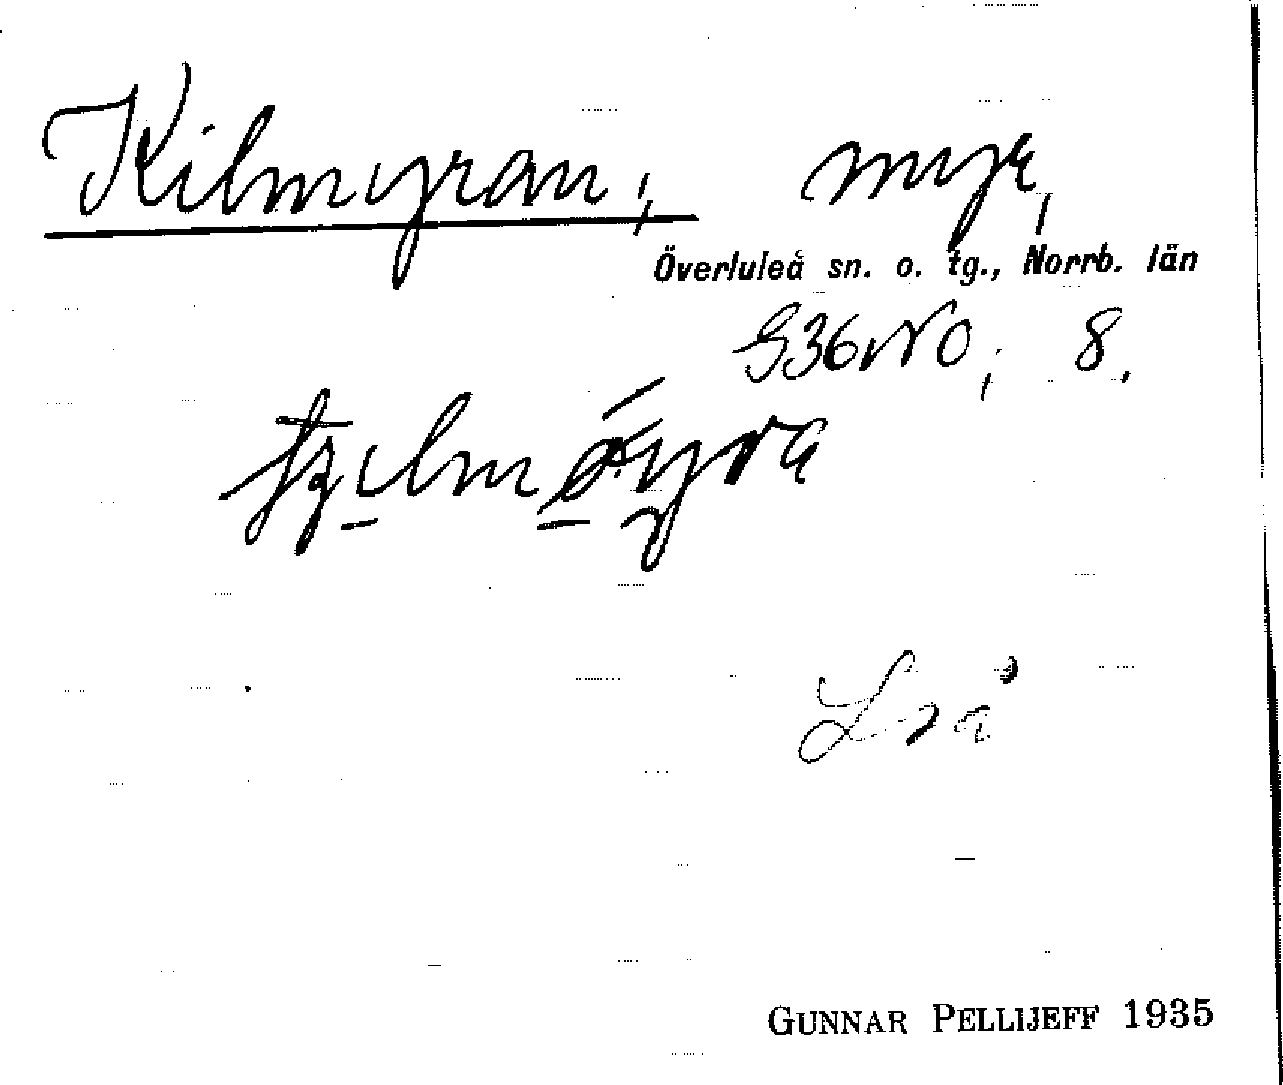 Kilmyran, myr,
Överluleå sn. o. tg., Norrb. län
G36NO; 8.
Lrå
GUNNAR PELLIJEFF 1935